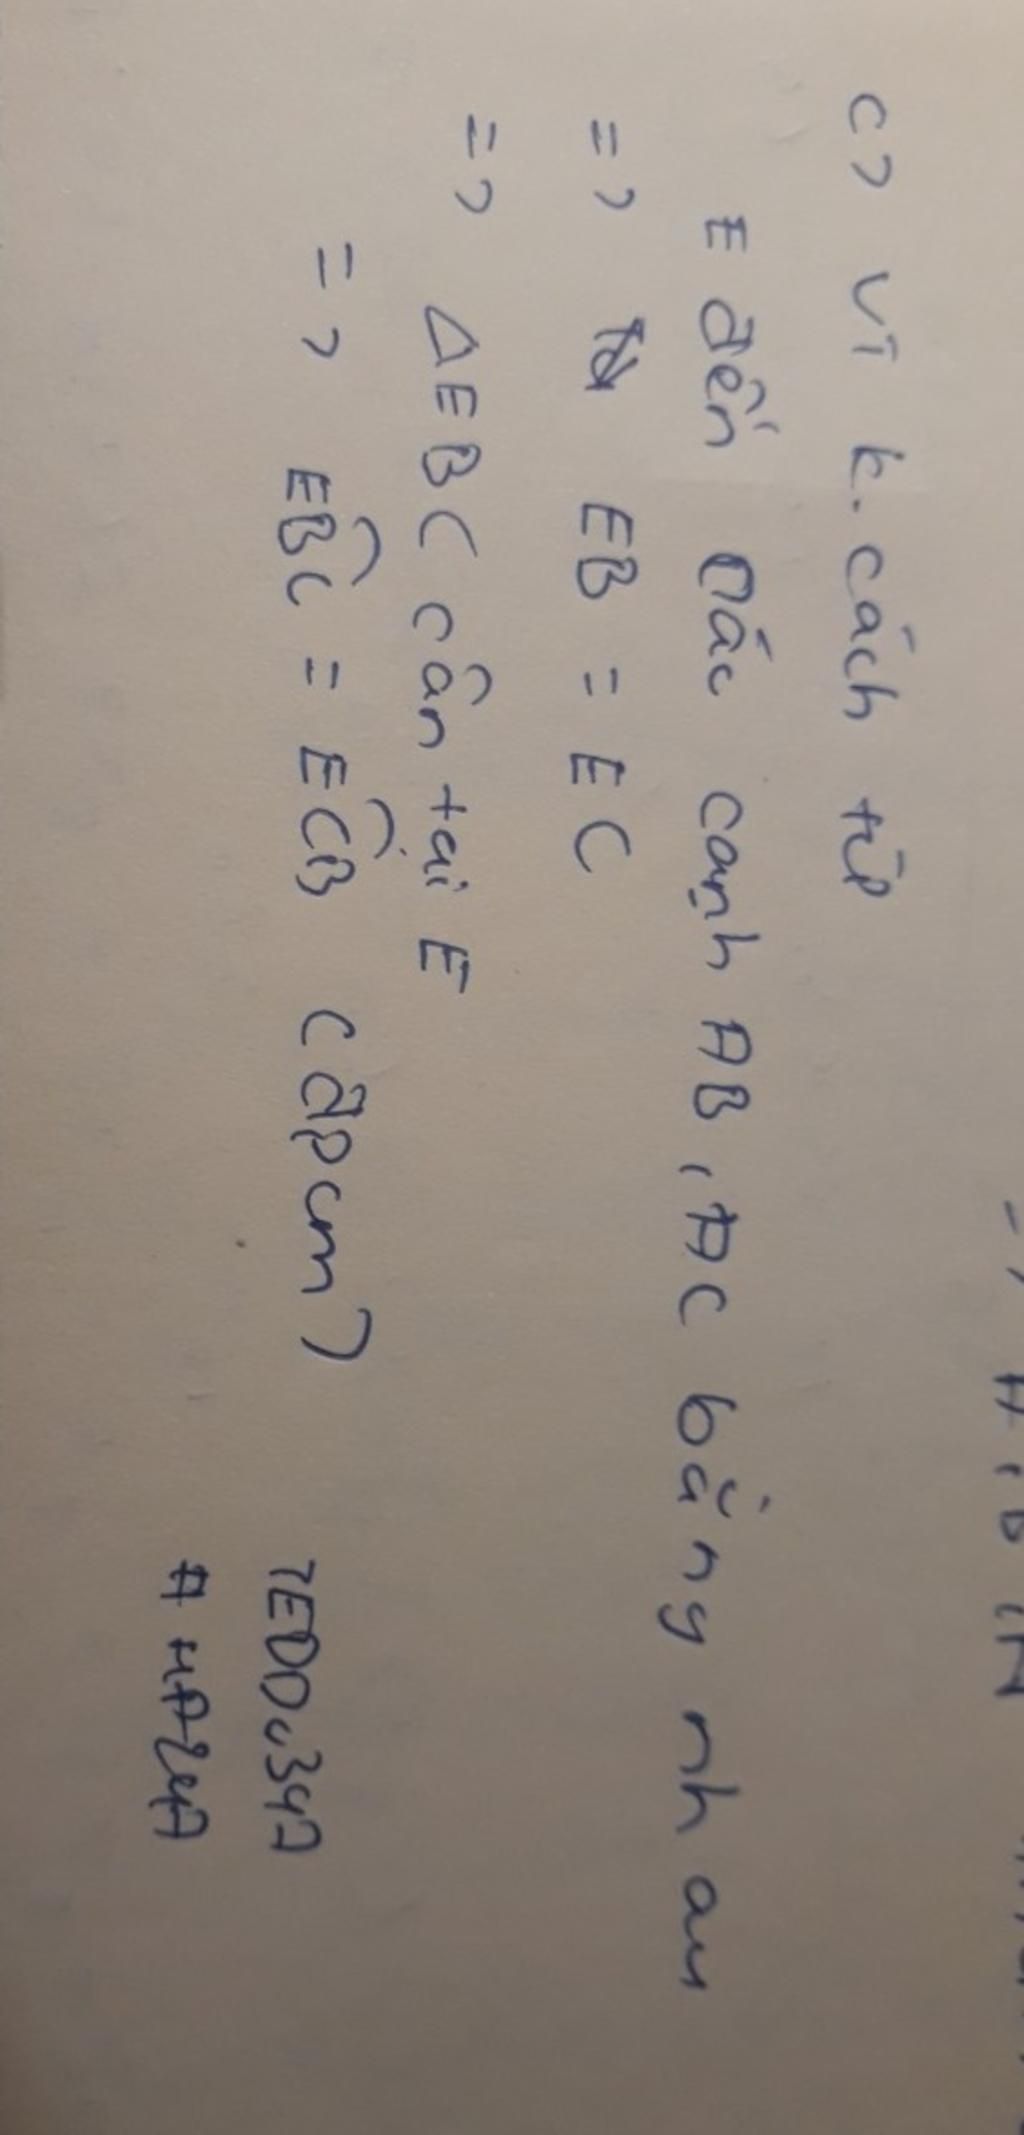 c> Vì k.cách từ
E đến các cạnh AB, AC bằng nhau
=> EB = EC
=> ΔEBC cân tại E
=> EB̂C = EĈB (đpcm)